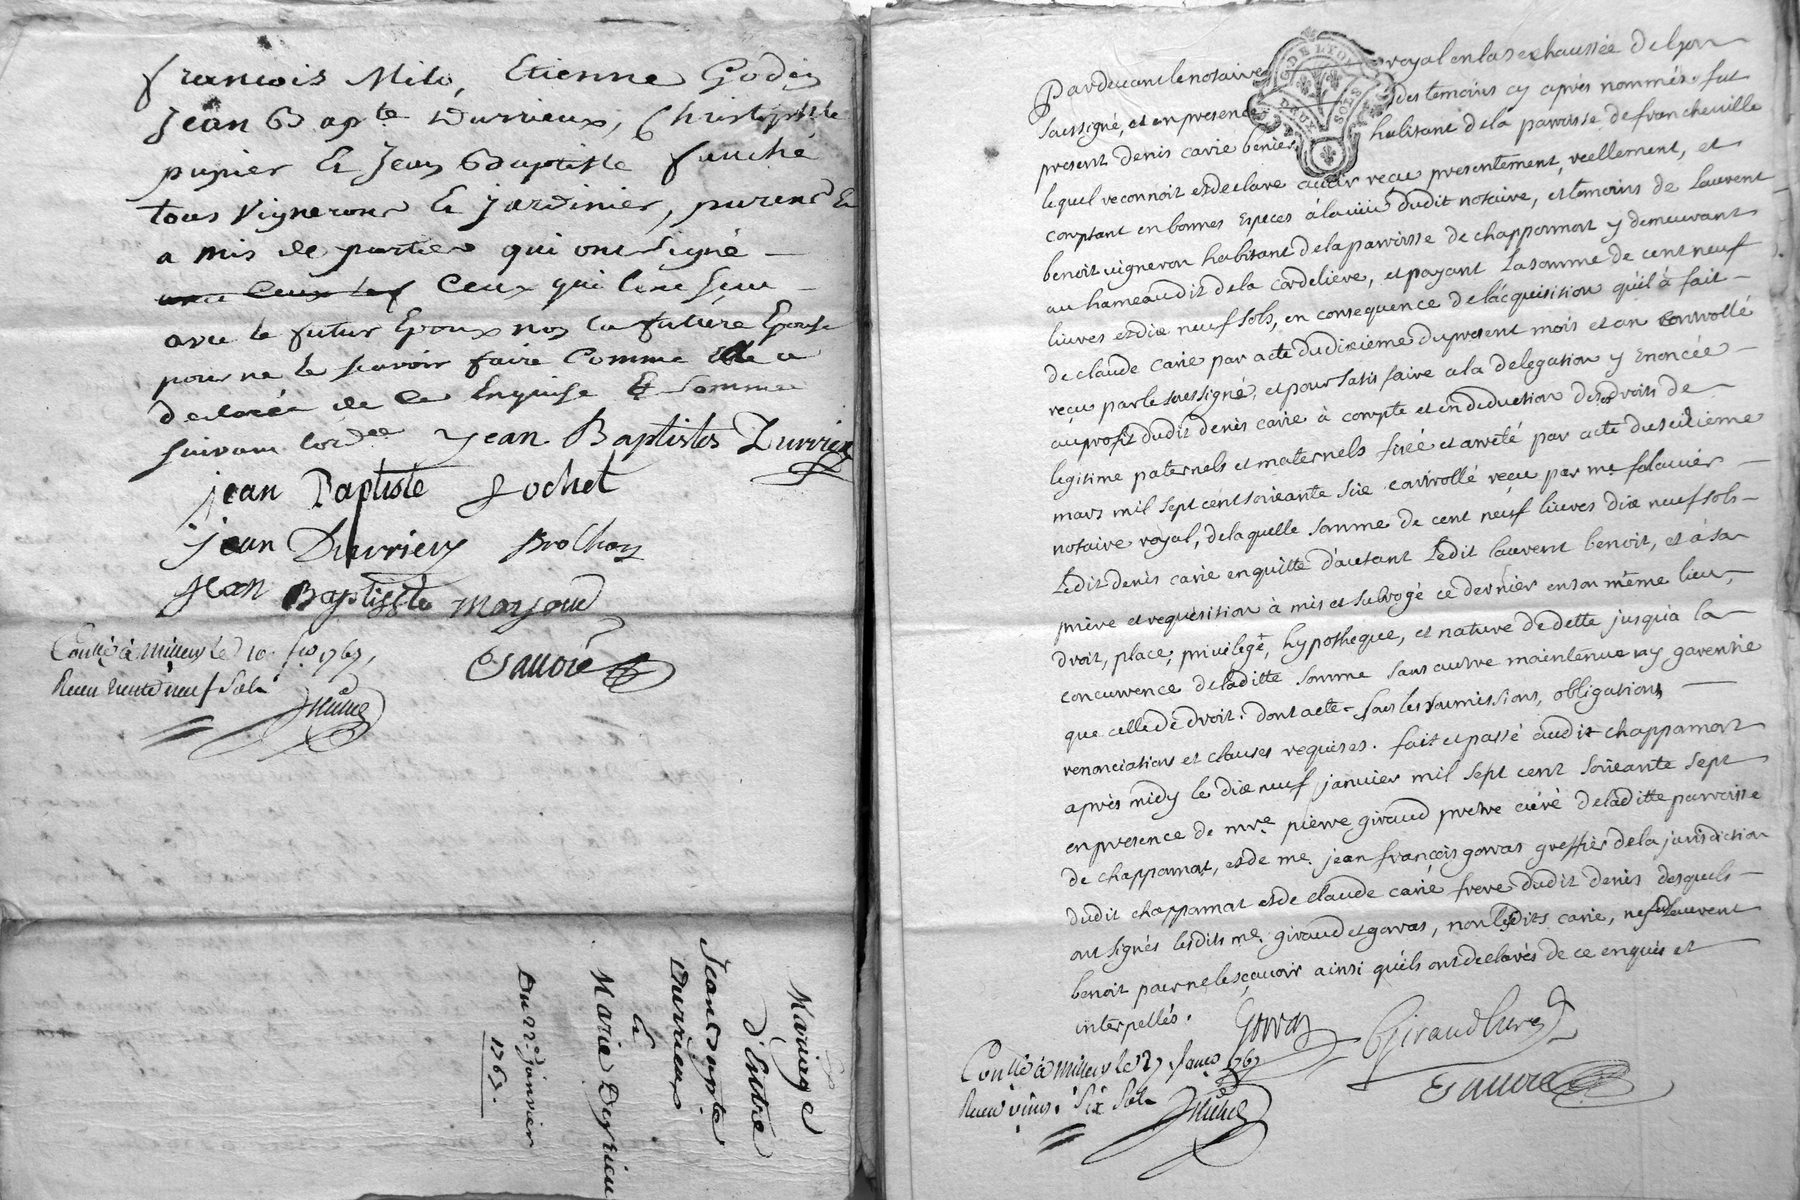 françois Milo, Etienne Godin
Jean Bapte Durrieux, Christophle
punier & Jean Baptiste fouché
tous Vignerons & Jardinier, parens &
a mis de parties qui ont Signé
ceux qui l'ont sçu
avec le futur Epoux non la future Epouse
pour ne le sçavoir faire comme Elle a
declarée de ce Enquise & sommée
suivant l'ordce Jean Baptistes Durrieu
jean Baptiste Rochet
jean Durrieux Brochon
Jean Baptisste
Esauvie
Contllé à Millery le 10. 1767,
Receu trente neuf Sols
Mariage
d'Entre
Jean bapte
Durrieux
&
Marie Deyrieu
Du 22e. Janvier
1767.
DEUX SOLS
G. DE LYON
Pardevant le notaire royal en la senechaussée de lyon
soussigné, et en presence des temoins cy après nommés. fut
present denis carié benier, habitant de la parroisse de francheville
lequel reconnoit et declare avoir reçu presentement, reellement, et
comptant en bonnes Especes à la vüe dudit notaire, et temoins de Laurent
benoit vigneron habitant de la parroisse de chapponnost y demeurant
au hameau dit de la cordeliere, et payant La somme de cent neuf
livres et dix neuf sols, en consequence de l'acquisition qu'il à fait
de claude carie par acte du dixieme du present mois et an controllé
reçu par le soussigné, et pour satisfaire a la delegation y Enoncée
au profit dudit denis carie à compte et en deduction de ses droits de
legitime paternels et maternels fixé et arrêté par acte du seizieme
mars mil sept cent soixante six controllé reçu par me
notaire royal, de laquelle somme de cent neuf livres dix neuf sols
Ledit denis carie en quitte d'autant Ledit laurent benoit, et à sa
priere et requisition à mis et subrogé ce dernier en son même lieu,
droit, place, privilege, hypotheque, et nature de dette jusqu'à la
concurrence de laditte somme sans autre maintenue ny garentie
que celle de droit. dont acte. sous les soumissions, obligations
renonciations et clauses requises. fait et passé audit chapponnost
après midy le dix neuf janvier mil sept cent soixante sept
en presence de mre. pierre giraud pretre curé de laditte parroisse
de chapponnost, et de me. jean françois gorras greffier de la jurisdiction
dudit chapponnost et de claude carié frere dudit denis desquels
ont signés lesdits me. giraud et gorras, non lesdits carie, ny ledit laurent
benoit pour ne le sçavoir ainsi qu'ils ont declarés de ce enquis et
interpellés.
Gorras Giraud Curé
Esauvie
Contllé à Millery le 27 Janv 1767
Receu vingt Six Sols